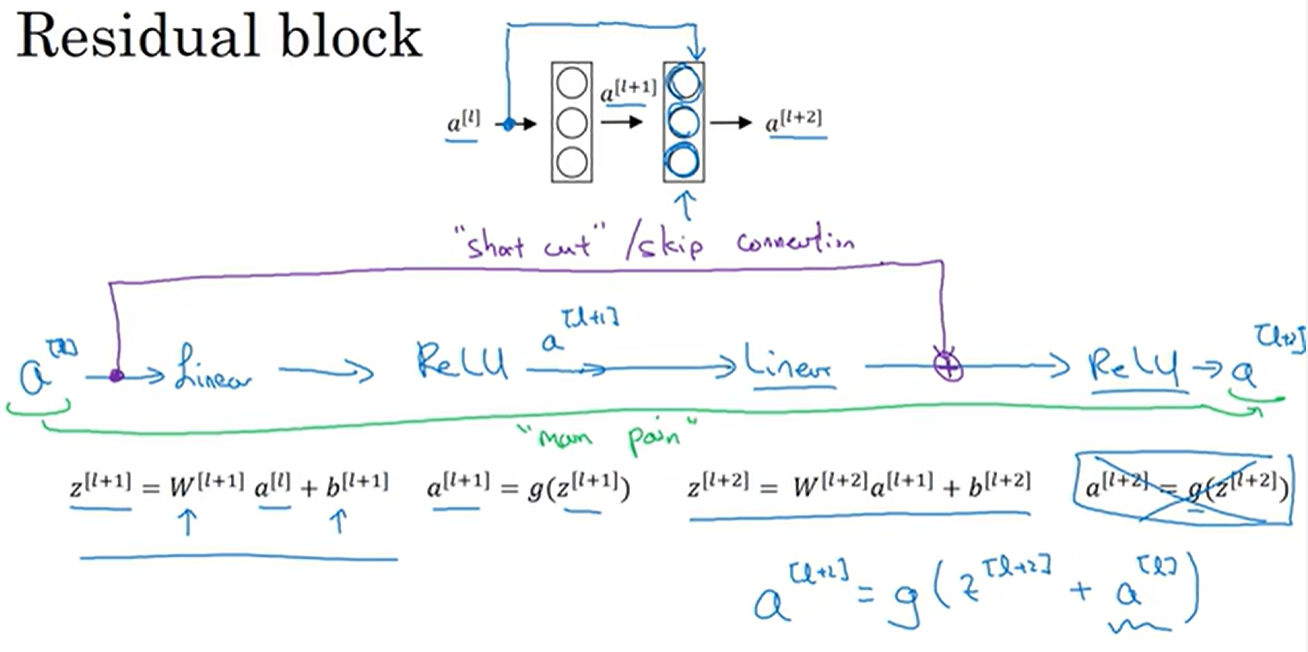 Residual block
a^[l] a^[l+1] a^[l+2]
"short cut" / skip connection
a^[l] → Linear → ReLU a^[l+1] → Linear → + → ReLU → a^[l+2]
"main path"
z^[l+1] = W^[l+1] a^[l] + b^[l+1] a^[l+1] = g(z^[l+1]) z^[l+2] = W^[l+2]a^[l+1] + b^[l+2] a^[l+2] = g(z^[l+2])
a^[l+2] = g(z^[l+2] + a^[l])